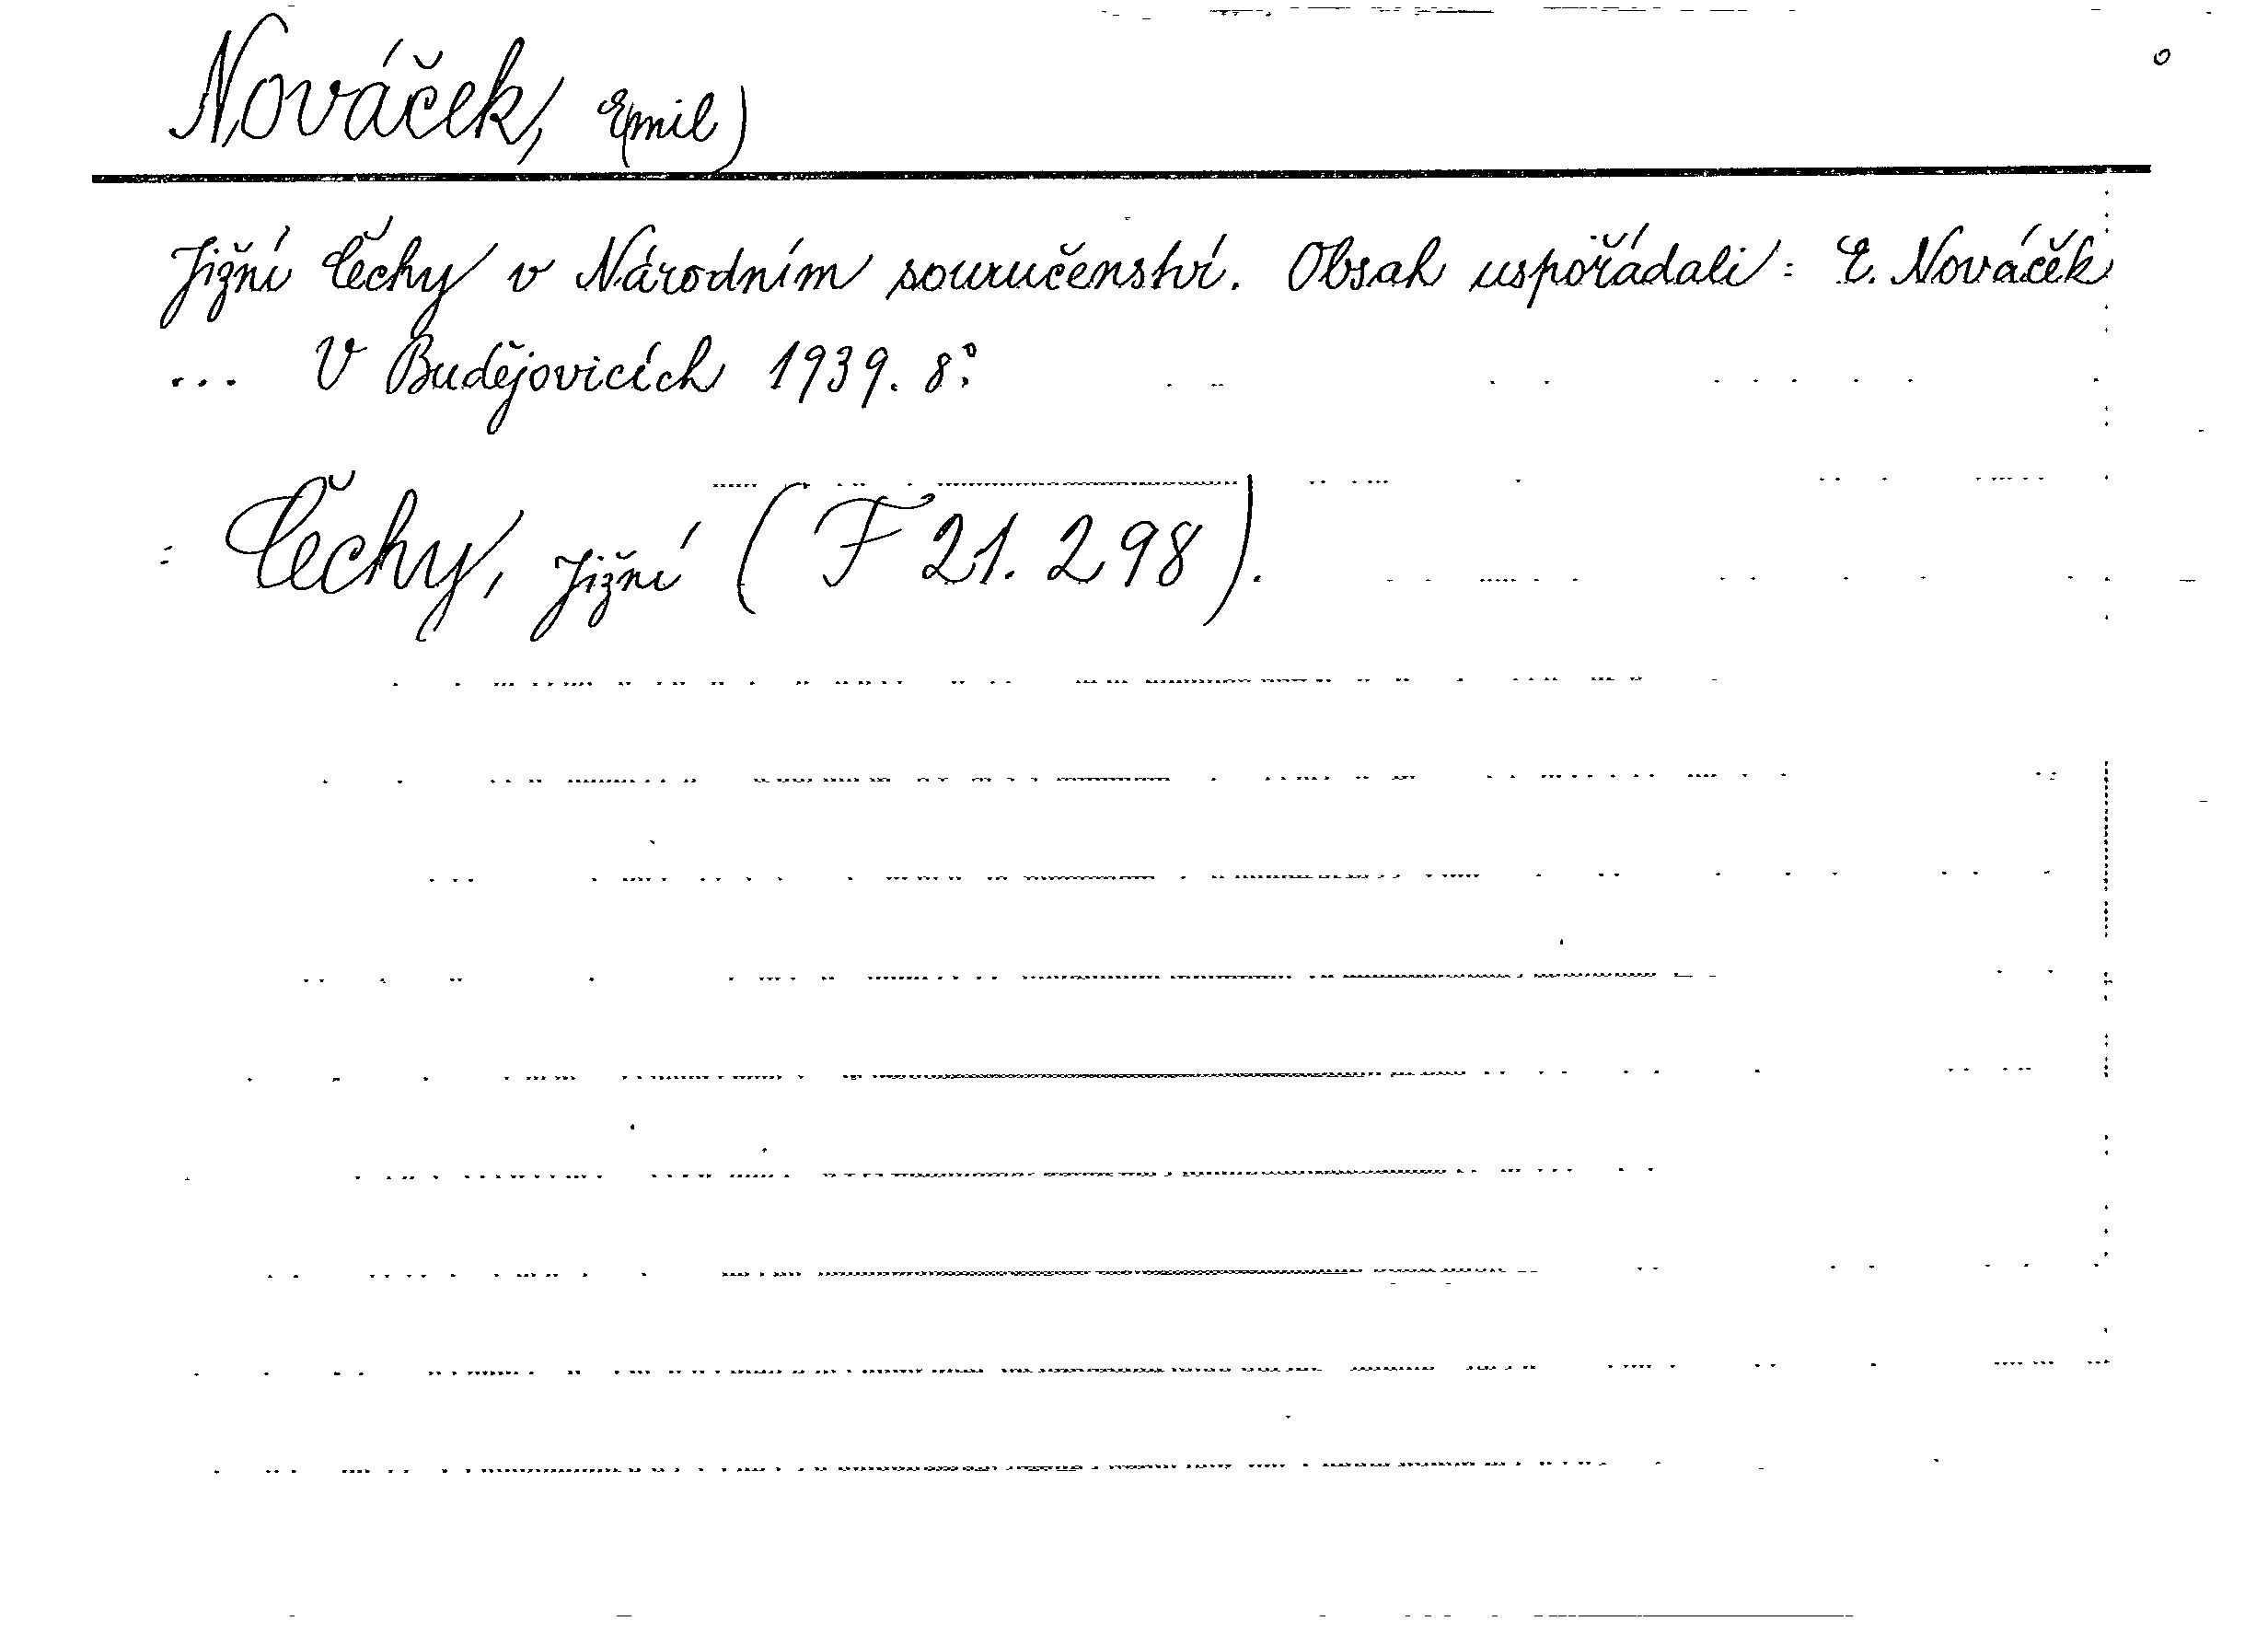 Nováček, E(mil)
Jižní Čechy v Národním souručenství. Obsah uspořádali: E. Nováček
... V Budějovicích 1939. 8°.
= Čechy, jižní (F 21.298).